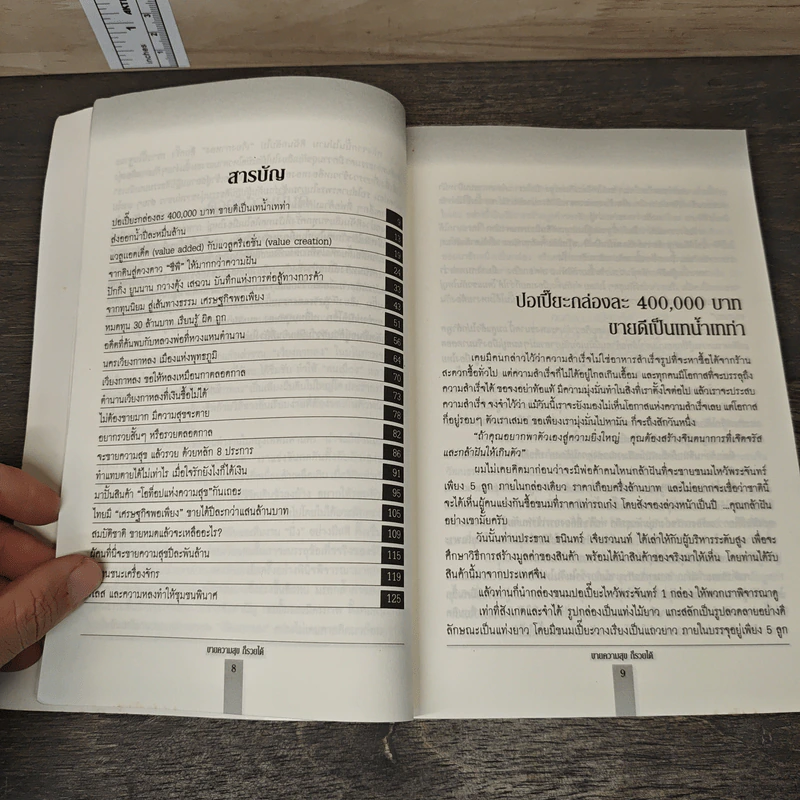 สารบัญ
ปอเปี๊ยะกล่องละ 400,000 บาท ขายดีเป็นเทน้ำเทท่า 9
ส่งออกน้ำปีละหมื่นล้าน 11
แวลูแอดเด็ด (value added) กับแวลูครีเอชั่น (value creation) 19
จากดินสู่ดวงดาว "ซีพี" ให้มากกว่าความฝัน 24
ปักกิ่ง ยูนนาน กวางตุ้ง เสฉวน บันทึกแห่งการต่อสู้ทางการค้า 33
จากทุนนิยม สู่เส้นทางธรรม เศรษฐกิจพอเพียง 43
หมดทุน 30 ล้านบาท เรียนรู้ ผิด ถูก 51
อดีตที่ค้นพบกับหลวงพ่อที่หวงแหนตำนาน 56
นครเวียงกาหลง เมืองแห่งพุทธภูมิ 64
เวียงกาหลง ขอให้หลงเหมือนกาตลอดกาล 70
ตำนานเวียงกาหลงที่เงินซื้อไม่ได้ 73
ไม่ต้องขายมาก มีความสุขจะตาย 78
อยากรวยสั้นๆ หรือรวยตลอดกาล 82
จะขายความสุข แล้วรวย ด้วยหลัก 8 ประการ 86
ทำแทบตายได้ไม่เท่าไร เมื่อไรรักยังไงก็ได้เงิน 91
มาปั้นสินค้า "โอท็อปแห่งความสุข" กันเถอะ 95
ไทยมี "เศรษฐกิจพอเพียง" ขายได้ปีละกว่าแสนล้านบาท 105
สมบัติชาติ ขายหมดแล้วจะเหลืออะไร? 109
ผู้คนที่นี่จะขายความสุขปีละพันล้าน 115
ชนะเครื่องจักร 119
และความหลงทำให้ชุมชนพินาศ 125
ขายความสุข ก็รวยได้
8
ปอเปี๊ยะกล่องละ 400,000 บาท
ขายดีเป็นเทน้ำเทท่า
เคยมีคนกล่าวไว้ว่าความสำเร็จไม่ใช่อาหารสำเร็จรูปที่จะหาซื้อได้จากร้าน
สะดวกซื้อทั่วไป แต่ความสำเร็จก็ไม่ได้อยู่ไกลเกินเอื้อม และทุกคนมีโอกาสที่จะบรรลุถึง
ความสำเร็จได้ ขอจงอย่าท้อแท้ มีความมุ่งมั่นทำในสิ่งที่เราตั้งใจต่อไป แล้วเราจะประสบ
ความสำเร็จ จงจำไว้ว่า แม้วันนี้เราจะยังมองไม่เห็นโอกาสแห่งความสำเร็จเลย แต่โอกาส
ก็อยู่รอบๆ ตัวเราเสมอ ขอเพียงเรามุ่งมั่นไปหามัน ก็จะถึงสักวันหนึ่ง
"ถ้าคุณอยากพาตัวเองสู่ความยิ่งใหญ่ คุณต้องสร้างจินตนาการที่เจิดจรัส
และกล้าฝันให้เกินตัว"
ผมไม่เคยคิดมาก่อนว่าจะมีพ่อค้าคนไหนกล้าฝันที่จะขายขนมไหว้พระจันทร์
เพียง 5 ลูก ภายในกล่องเดียว ราคาเกือบครึ่งล้านบาท และไม่อยากจะเชื่อว่าชาตินี้
จะได้เห็นผู้คนแย่งกันซื้อขนมที่ราคาเท่ารถเก๋ง โดยสั่งจองล่วงหน้าเป็นปี ...คุณกล้าฝัน
อย่างเขามั้ยครับ
วันนั้นท่านประธาน ธนินทร์ เจียรวนนท์ ได้เล่าให้กับผู้บริหารระดับสูง เพื่อจะ
ศึกษาวิธีการสร้างมูลค่าของสินค้า พร้อมได้นำสินค้าของจริงมาให้เห็น โดยท่านได้รับ
สินค้านี้มาจากประเทศจีน
แล้วท่านก็นำกล่องขนมปอเปี๊ยะไหว้พระจันทร์ 1 กล่อง ให้พวกเราพิจารณาดู
เท่าที่สังเกตและจำได้ รูปกล่องเป็นแท่งไม้ยาว แกะสลักเป็นรูปลวดลายอย่างดี
ลักษณะเป็นแท่งยาว โดยมีขนมเปี๊ยะวางเรียงเป็นแถวยาว ภายในบรรจุอยู่เพียง 5 ลูก
ขายความสุข ก็รวยได้
9